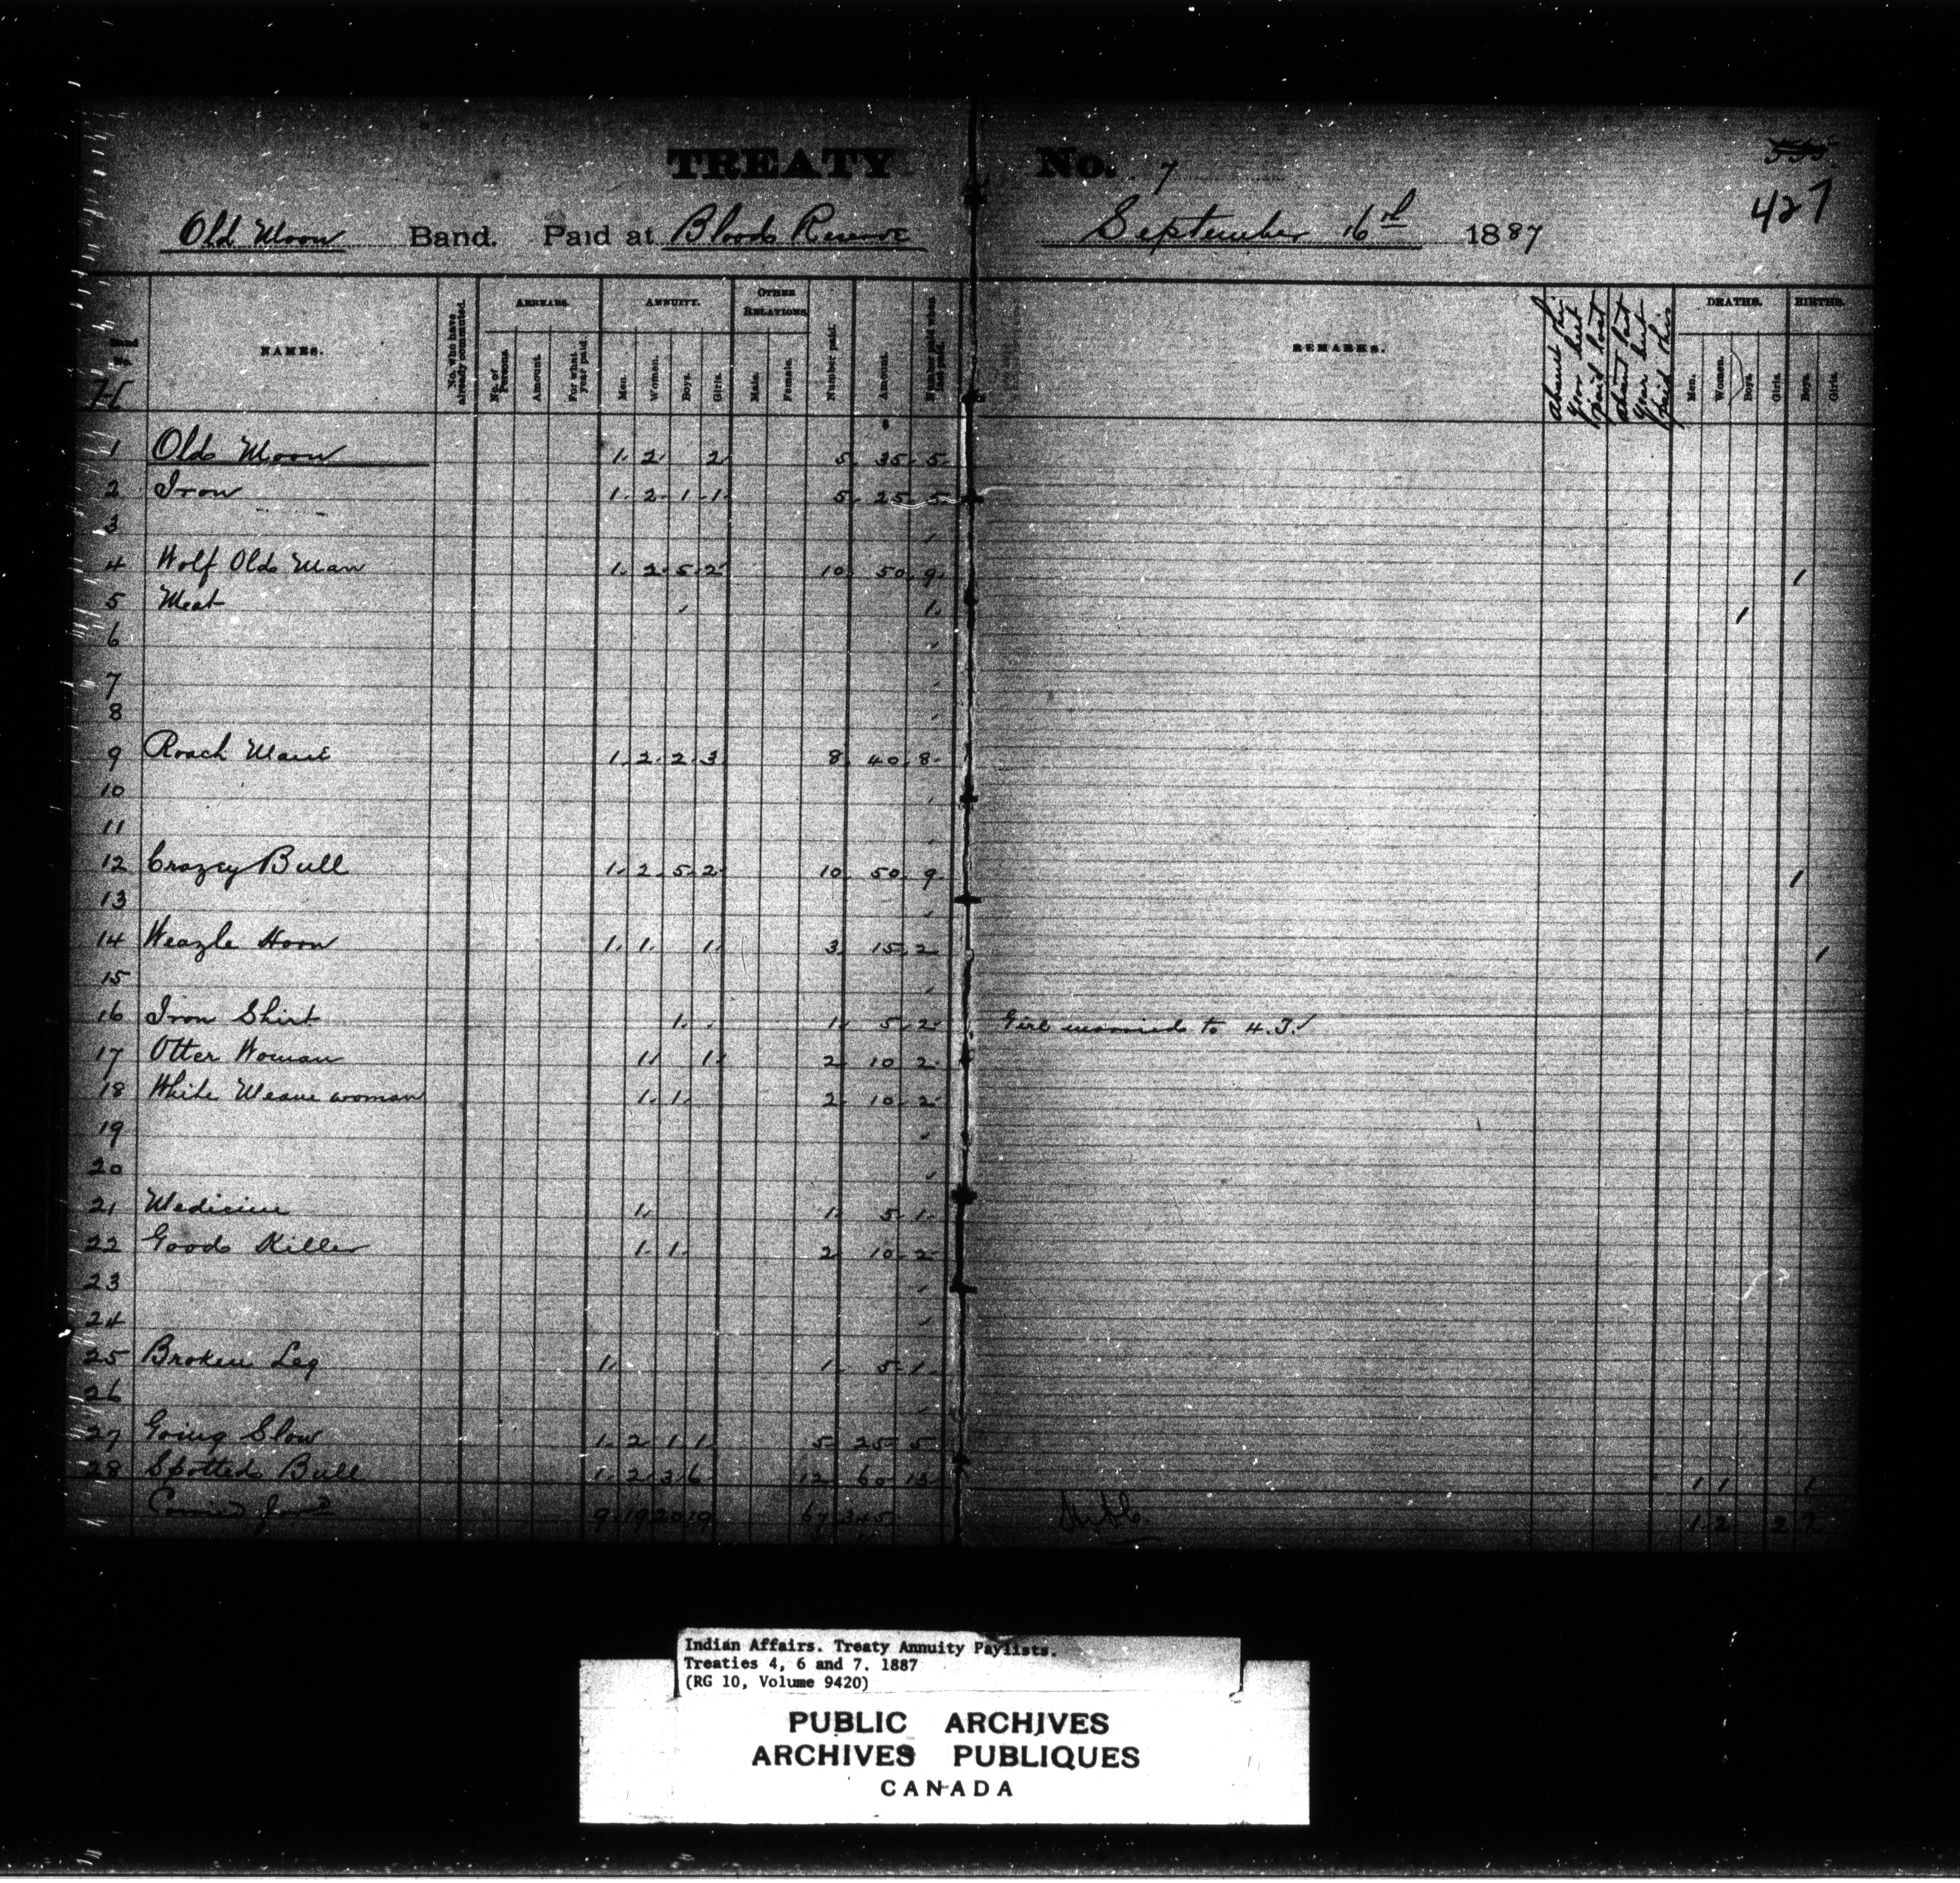 TREATY No. 7
427
Old Moon Band. Paid at Blood Reserve September 16th 1887
NAMES.
No. who have already commuted.
ARREARS.
No. of Persons.
Amount.
For what year paid.
ANNUITY.
Men.
Women.
Boys.
Girls.
OTHER RELATIONS
Male.
Female.
Number paid.
Amount.
REMARKS.
DEATHS.
Men.
Women.
Boys.
Girls.
BIRTHS.
Boys.
Girls.
1 Old Moon 1 2 2 5 35 5
2 Iron 1 2 1 1 5 25 5
3
4 Wolf Old Man 1 2 5 2 10 50 9 1
5 Meat 1 1
6
7
8
9 Roach Mane 1 2 2 3 8 40 8
10
11
12 Crazey Bull 1 2 5 2 10 50 9 1
13
14 Weazle Horn 1 1 1 3 15 2 1
15
16 Iron Shirt 1 1 5 2 Girl married to
17 Otter Woman 1 1 2 10 2
18 White woman 1 1 2 10 2
19
20
21 Medicine 1 1 5 1
22 Good Killer 1 1 2 10 2
23
24
25 Broken Leg 1 1 5 1
26
27 Going Slow 1 2 1 1 5 25 5
28 Spotted Bull 1 2 3 6 12 60 13 1 1 1
Carried for'd 9 19 20 19 67 345
Indian Affairs. Treaty Annuity Paylists.
Treaties 4, 6 and 7. 1887
(RG 10, Volume 9420)
PUBLIC ARCHIVES
ARCHIVES PUBLIQUES
CANADA